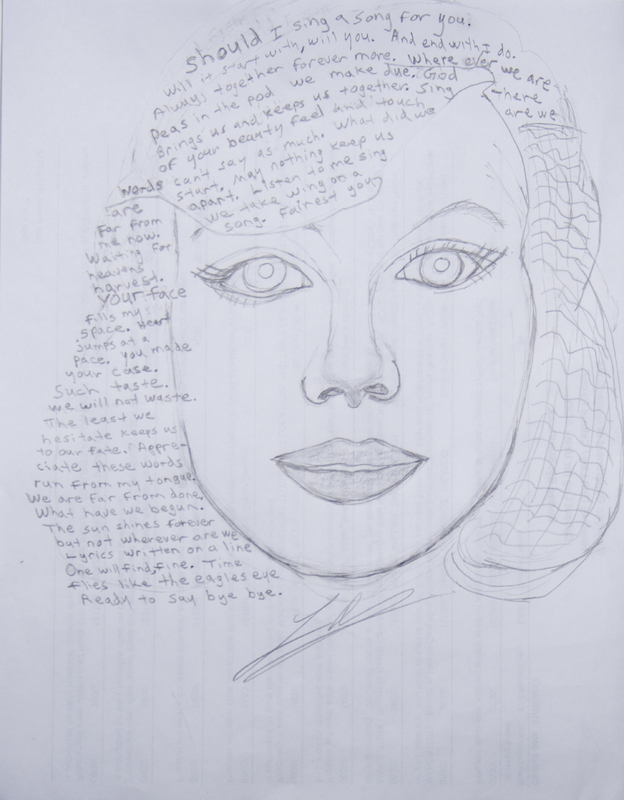 should I sing a song for you.
Will it start with, will you. And end with I do.
Always together forever more. Where ever we are
Peas in the pod we make due. God -there
Brings us and keeps us together. Sing are we
of your beauty feel and touch
Words cant say as much. What did we
start. May nothing keep us
apart. Listen to me sing
we take wing on a
song. Fairest you
are
far from
me now.
Waiting for
heavens
harvest.
your face
fills my
space. Heart
jumps at a
pace. you made
your case.
Such taste.
we will not waste.
The least we
hesitate keeps us
to our fate. Appre-
ciate these words
run from my tongue.
We are far from done.
What have we begun.
The sun shines forever
but not wherever are we
Lyrics written on a line
One will find, fine. Time
flies like the eagles eye
Ready to say bye bye.